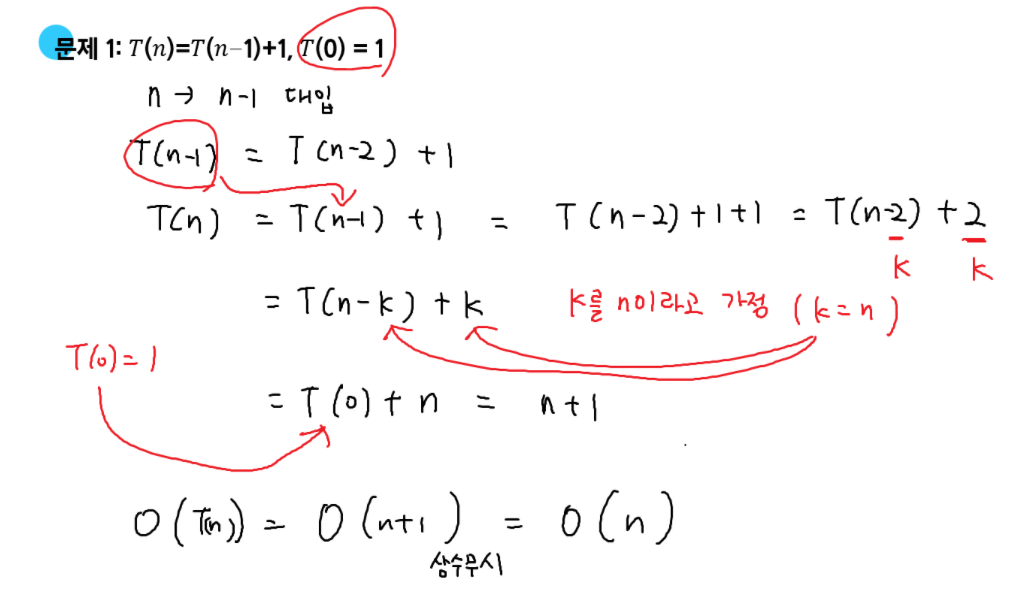 문제 1: T(n)=T(n-1)+1, T(0) = 1
n → n-1 대입
T(n-1) = T(n-2) +1
T(n) = T(n-1) +1 = T(n-2)+1+1 = T(n-2) +2
k k
= T(n-k) + k k를 n이라고 가정 (k=n)
T(0)=1
= T(0)+ n = n+1
O(T(n)) = O(n+1) = O(n)
상수무시